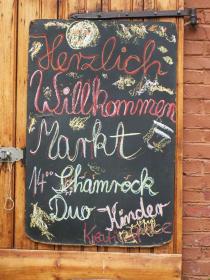 Herzlich
Willkommen
Markt
14⁰⁰ Schamrock
Duo - Kinder